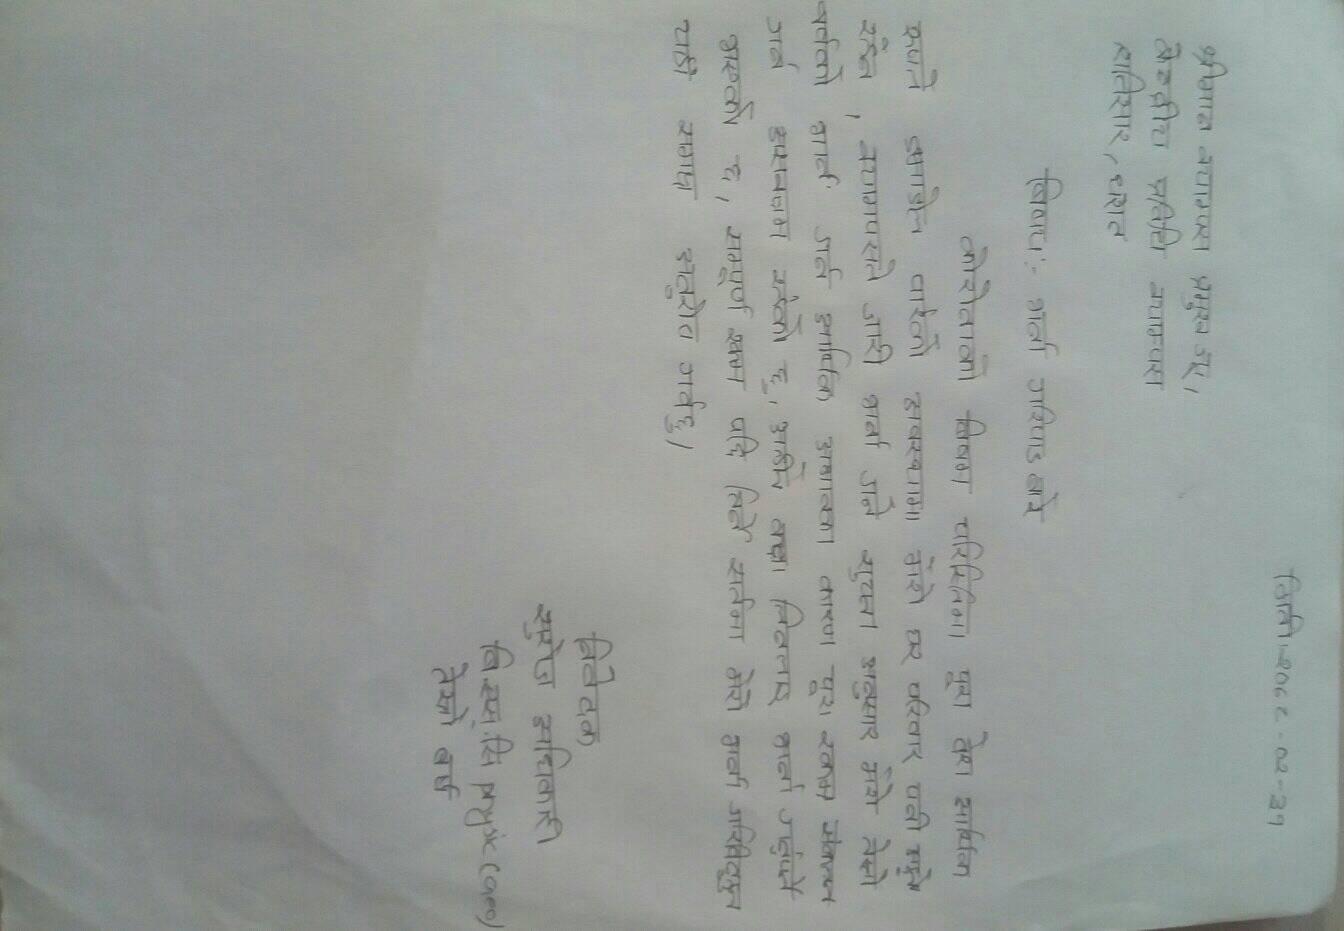 मिती: २०७८-०२-३१
श्रीमान क्याम्पस प्रमुख ज्यू,
केन्द्रीय प्रविधि क्याम्पस
हात्तिसार, धरान
बिषय:- भर्ना गरिपाउ बारे
कोरोनाको बिषम परिस्तिमा पूरा देश आर्थिक
रूपले डामाडोल पारेको अवस्थामा मेरो घर परिवार पनी अछूतो
रहेन, क्यामपसले जारी भर्ना गर्ने सुचना अनुसार मेरो तेस्रो
बर्षको भर्ना गर्न आर्थिक अभावका कारण पूरा रकम संकलन
गर्न असक्षम रहेको छु, अहीले कक्षा लिनलाइ भर्ना गर्नुपर्ने
भएको छ, सम्पूर्ण रकम पछि तिर्ने सर्तमा मेरो भर्ना गरिदिनुहुन
यही समक्ष अनुरोध गर्दछु।
निवेदक
सुरोज अधिकारी
बि.एस.सि physic (Geo)
तेस्रो बर्ष